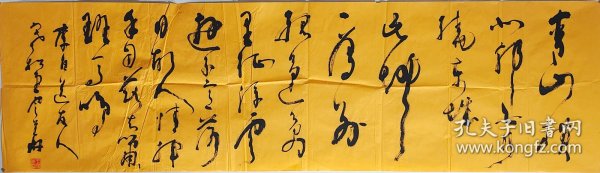 青山横
北郭白水
绕东城
此地
一为别
孤蓬万
里征浮云
游子意落
日故人情挥
手自兹去萧萧
班马鸣
李白送友人
孔夫子旧书网
www.kongfz.com